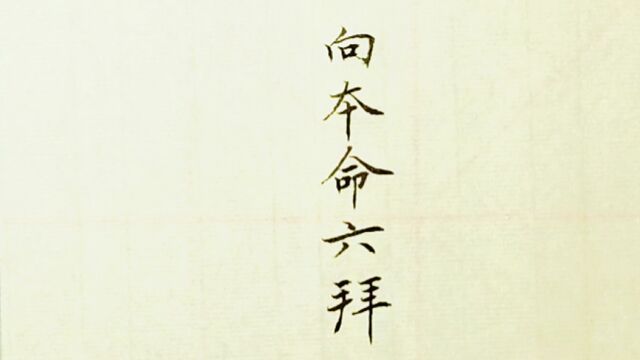 向本命六拜